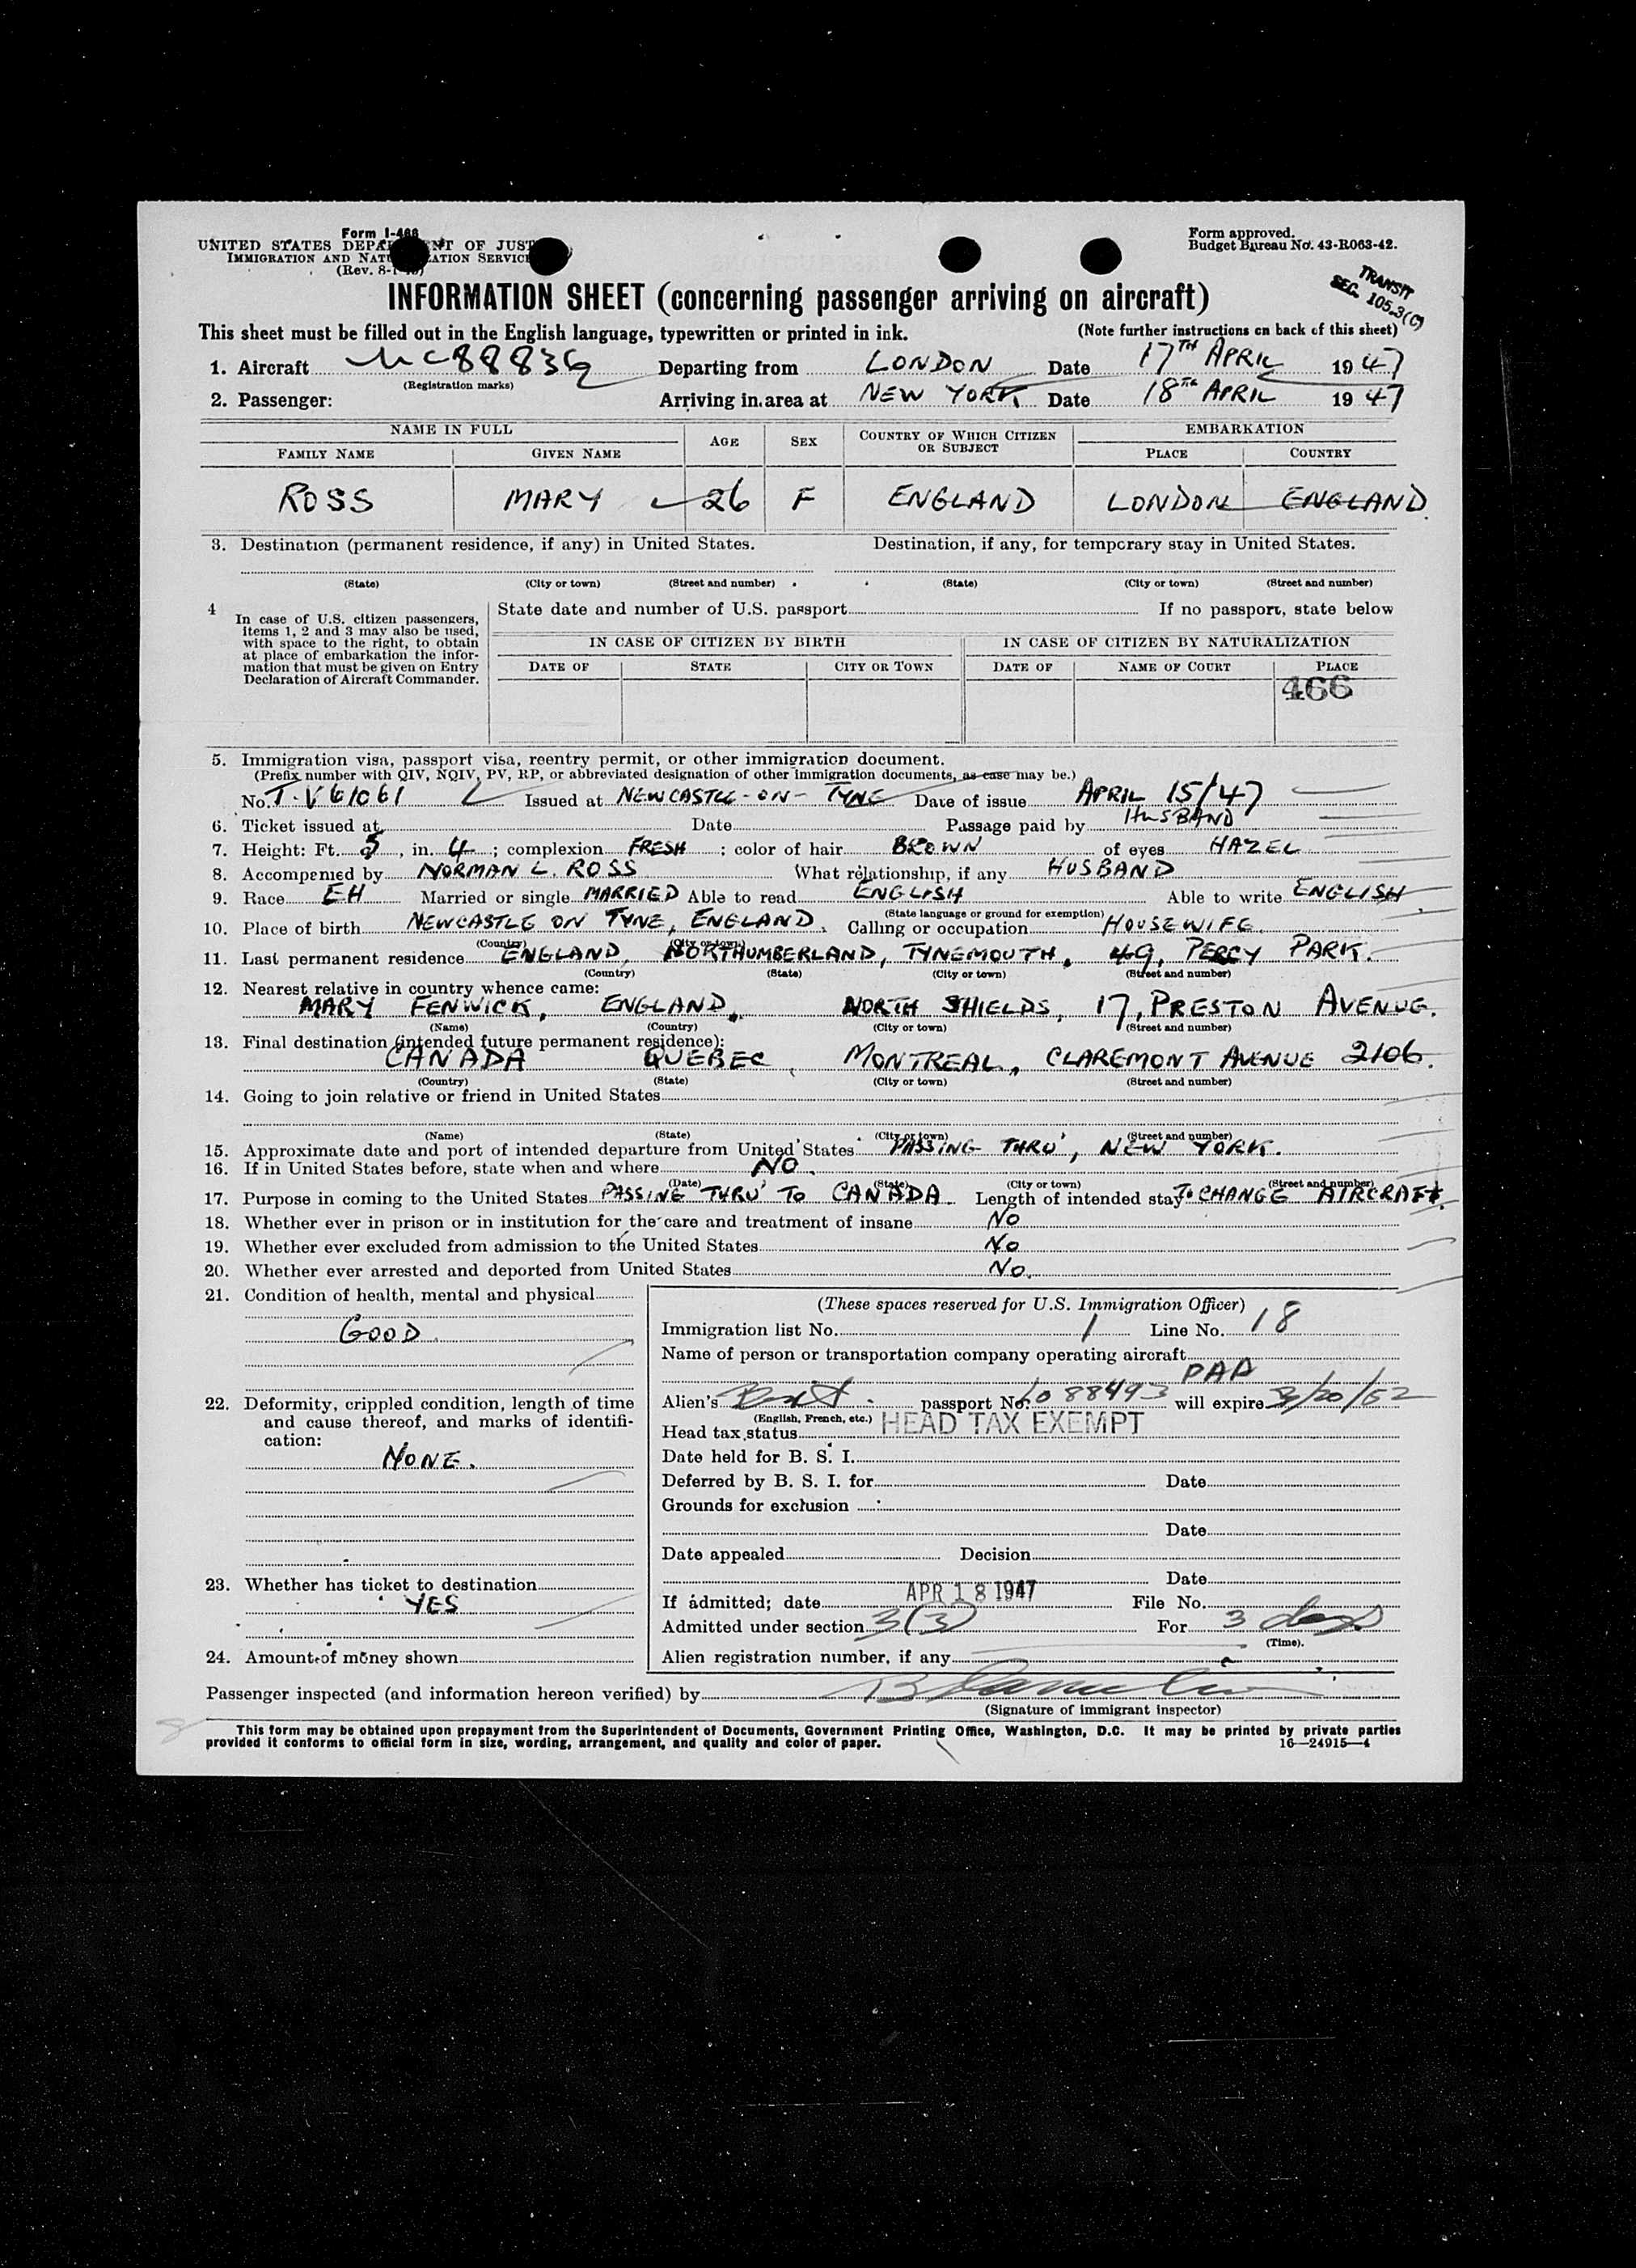 Form I-466
UNITED STATES DEPARTMENT OF JUSTICE
IMMIGRATION AND NATURALIZATION SERVICE
(Rev. 8-1-
Form approved.
Budget Bureau No. 43-R063-42.
TRANSIT
SEC. 105.3(C)
INFORMATION SHEET (concerning passenger arriving on aircraft)
This sheet must be filled out in the English language, typewritten or printed in ink. (Note further instructions on back of this sheet)
1. Aircraft NC88839 Departing from LONDON Date 17TH APRIL 1947
(Registration marks)
2. Passenger: Arriving in area at NEW YORK Date 18TH APRIL 1947
NAME IN FULL AGE SEX COUNTRY OF WHICH CITIZEN OR SUBJECT EMBARKATION
FAMILY NAME GIVEN NAME PLACE COUNTRY
ROSS MARY 26 F ENGLAND LONDON ENGLAND
3. Destination (permanent residence, if any) in United States. Destination, if any, for temporary stay in United States.
(State) (City or town) (Street and number) (State) (City or town) (Street and number)
4 In case of U.S. citizen passengers, items 1, 2 and 3 may also be used, with space to the right, to obtain at place of embarkation the information that must be given on Entry Declaration of Aircraft Commander.
State date and number of U.S. passport If no passport, state below
IN CASE OF CITIZEN BY BIRTH IN CASE OF CITIZEN BY NATURALIZATION
DATE OF STATE CITY OR TOWN DATE OF NAME OF COURT PLACE
466
5. Immigration visa, passport visa, reentry permit, or other immigration document.
(Prefix number with QIV, NQIV, PV, RP, or abbreviated designation of other immigration documents, as case may be.)
No. T.V 61061 Issued at NEWCASTLE-ON-TYNE Date of issue APRIL 15/47
6. Ticket issued at Date Passage paid by HUSBAND
7. Height: Ft. 5, in. 4; complexion FRESH; color of hair BROWN of eyes HAZEL
8. Accompanied by NORMAN L. ROSS What relationship, if any HUSBAND
9. Race EH Married or single MARRIED Able to read ENGLISH Able to write ENGLISH
(State language or ground for exemption)
10. Place of birth NEWCASTLE ON TYNE, ENGLAND. Calling or occupation HOUSEWIFE.
(Country) (City or town)
11. Last permanent residence ENGLAND, NORTHUMBERLAND, TYNEMOUTH, 49, PERCY PARK.
(Country) (State) (City or town) (Street and number)
12. Nearest relative in country whence came:
MARY FENWICK, ENGLAND, NORTH SHIELDS, 17, PRESTON AVENUE.
(Name) (Country) (City or town) (Street and number)
13. Final destination (intended future permanent residence):
CANADA QUEBEC, MONTREAL, CLAREMONT AVENUE 2106.
(Country) (State) (City or town) (Street and number)
14. Going to join relative or friend in United States
(Name) (State) (City or town) (Street and number)
15. Approximate date and port of intended departure from United States PASSING THRU', NEW YORK.
16. If in United States before, state when and where NO.
(Date) (State) (City or town) (Street and number)
17. Purpose in coming to the United States PASSING THRU' TO CANADA Length of intended stay TO CHANGE AIRCRAFT.
18. Whether ever in prison or in institution for the care and treatment of insane NO
19. Whether ever excluded from admission to the United States NO
20. Whether ever arrested and deported from United States NO.
21. Condition of health, mental and physical
GOOD.
22. Deformity, crippled condition, length of time and cause thereof, and marks of identification:
NONE.
23. Whether has ticket to destination
YES
24. Amount of money shown
(These spaces reserved for U.S. Immigration Officer)
Immigration list No. 1 Line No. 18
Name of person or transportation company operating aircraft
PAA
Alien's Brit. passport No. 088493 will expire 3/20/52
(English, French, etc.)
Head tax status HEAD TAX EXEMPT
Date held for B. S. I.
Deferred by B. S. I. for Date
Grounds for exclusion
Date
Date appealed Decision
Date
If admitted; date APR 18 1947 File No.
Admitted under section 3(3) For 3 days
(Time).
Alien registration number, if any
Passenger inspected (and information hereon verified) by
(Signature of immigrant inspector)
This form may be obtained upon prepayment from the Superintendent of Documents, Government Printing Office, Washington, D.C. It may be printed by private parties
provided it conforms to official form in size, wording, arrangement, and quality and color of paper. 16—24915—4